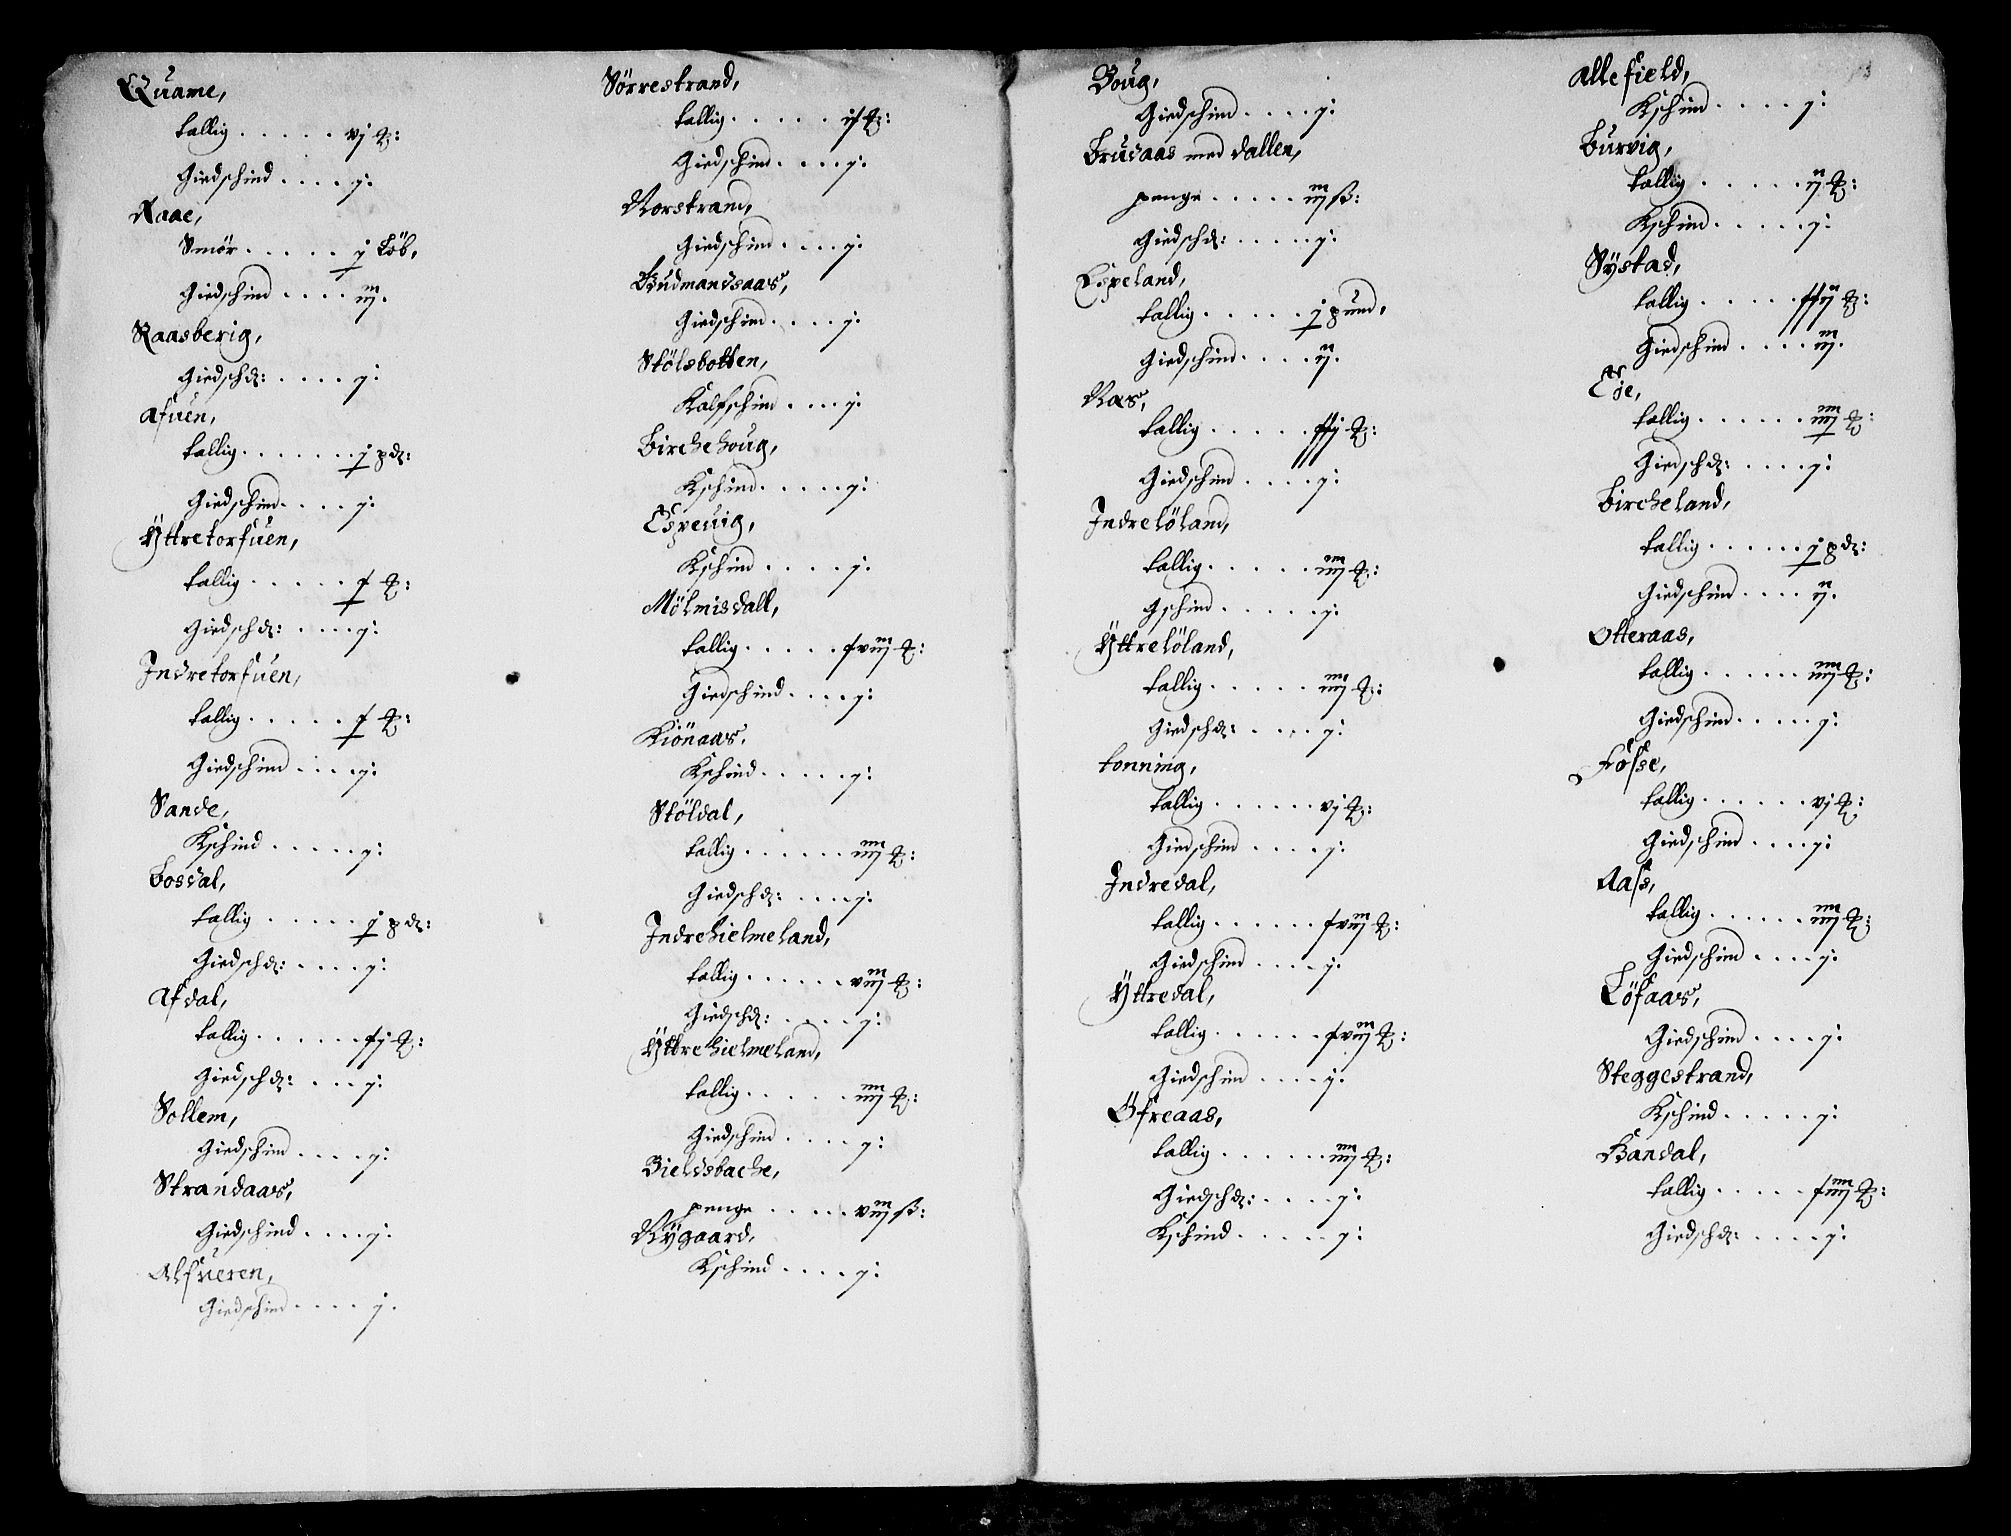 Quame,
tallig . . . . . vj ꝶ:
Giedschind . . . . j:
Raae,
Smör . . . . . j Löb,
Giedschind . . . . iij.
Raasberig,
Giedschd: . . . . j:
Afuen,
tallig . . . . . . j pd:
Giedschind . . . . j:
Yttretorfuen,
tallig . . . . . ꝶ:
Giedschd: . . . . j:
Indretorfuen,
tallig . . . . . ꝶ:
Giedschind . . . . j:
Sande,
Kschind . . . . . j:
Bosdal,
tallig . . . . . j pd:
Giedschd: . . . . j:
Afdal,
tallig . . . . . . xj ꝶ:
Giedschd: . . . j:
Sollem,
Giedschind . . . . j:
Strandaas,
Giedschind . . . . j:
Alfueren,
Giedschind . . . . j.
Sörrestrand,
tallig . . . . . ꝶ:
Giedschind . . . . j:
Norstrand,
Giedschind . . . . j:
Gudmandsaas,
Giedschind . . . . j:
Stölsbotten,
Kalfschind . . . . j:
Birchehoug,
Kschind . . . . . j:
Espeuig,
Kschind . . . . j:
Mölmisdall,
tallig . . . . . xviij ꝶ:
Giedschind . . . . j:
Kiönaas,
Kschind . . . . . j:
Stöldal,
tallig . . . . . . iiij ꝶ:
Giedschd: . . . . j:
Indrehielmeland,
tallig . . . . . . viij ꝶ:
Giedschd: . . . . j:
Yttrehielmeland,
tallig . . . . . iiij ꝶ:
Giedschind . . . . j:
Bieldsbache,
penge . . . . . viij ß:
Nÿgaard,
Kschind . . . . j:
Houg,
Giedschind . . . . j:
Brudaas med dallen,
penge . . . . . iij ß:
Giedschd: . . . . . j:
Espeland,
tallig . . . . . j pund,
Giedschind . . . . ij.
Nas,
tallig . . . . . xxj ꝶ:
Giedschind . . . . j:
Indrelöland,
tallig . . . . . iiij ꝶ:
Gschind . . . . . j:
Yttrelöland,
tallig . . . . . iiij ꝶ:
Giedschd: . . . . j:
tonning,
tallig . . . . . . vj ꝶ:
Giedschind . . . . j:
Indredal,
tallig . . . . . . xviij ꝶ:
Giedschind . . . . j:
Yttredal,
tallig . . . . . . xviij ꝶ:
Giedschind . . . . j:
Öfreaas,
tallig . . . . . . iiij ꝶ:
Giedschd: . . . . j:
Kschind . . . . . j:
Allefield,
Kschind . . . . j:
Burvig,
tallig . . . . . ij ꝶ:
Kschind . . . . . j:
Sÿstad,
tallig . . . . . xxij ꝶ:
Giedschind . . . . iij.
Eÿe,
tallig . . . . . . iiij ꝶ:
Giedschd: . . . . j:
Bircheland,
tallig . . . . . j pd:
Giedschind . . . . ij.
Otteraas,
tallig . . . . . . iiij ꝶ:
Giedschind . . . . . j:
Fosse,
tallig . . . . . . vj ꝶ:
Giedschind . . . . j:
Aass,
tallig . . . . . . iiij ꝶ:
Giedschind . . . . j:
Löfaas,
Giedschind . . . . j:
Steggestrand,
Kschind . . . . . j:
Handal,
tallig . . . . . xiiij ꝶ:
Giedschd: . . . . . j: